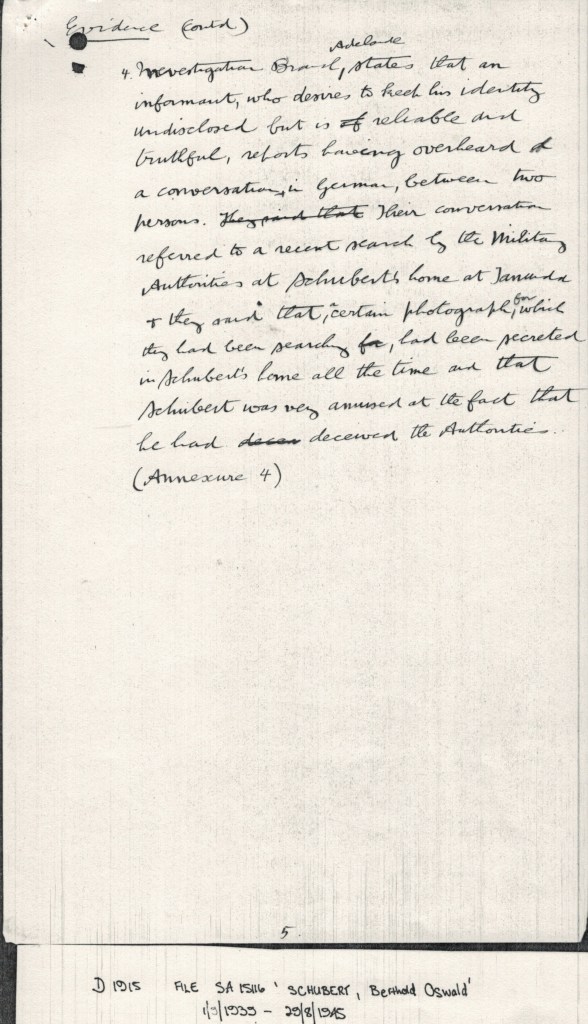 Evidence (contd)
Adelaide
4. Investigation Branch, states that an
informant, who desires to keep his identity
undisclosed but is of reliable and
truthful, reports having overheard
a conversation, in German, between two
persons. They said that Their conversation
referred to a recent search by the Military
Authorities at Schubert's home at Tanunda
+ they said that, certain photograph, for which
they had been searching for, had been secreted
in Schubert's home all the time and that
Schubert was very amused at the fact that
he had decei deceived the Authorities.
(Annexure 4)
5.
D 1915 FILE SA 15116 'SCHUBERT, Berthold Oswald'
1/9/1939 - 29/8/1945